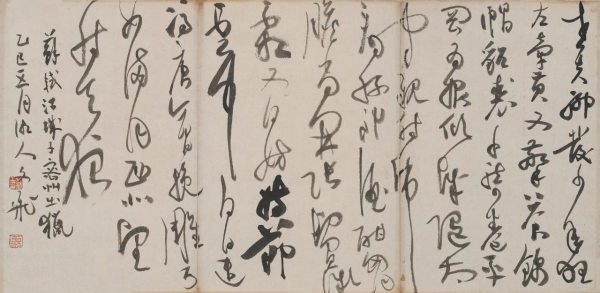 老夫聊發少年狂
左牽黃右擎蒼錦
帽貂裘千騎卷平
岡為報傾城隨太
守親射虎
看孫郎酒酣胸
膽尚開張鬢微
霜又何妨持節
雲中何日遣
馮唐會挽雕弓
如滿月西北望
射天狼
蘇軾江城子密州出獵
乙巳月湖人文飛